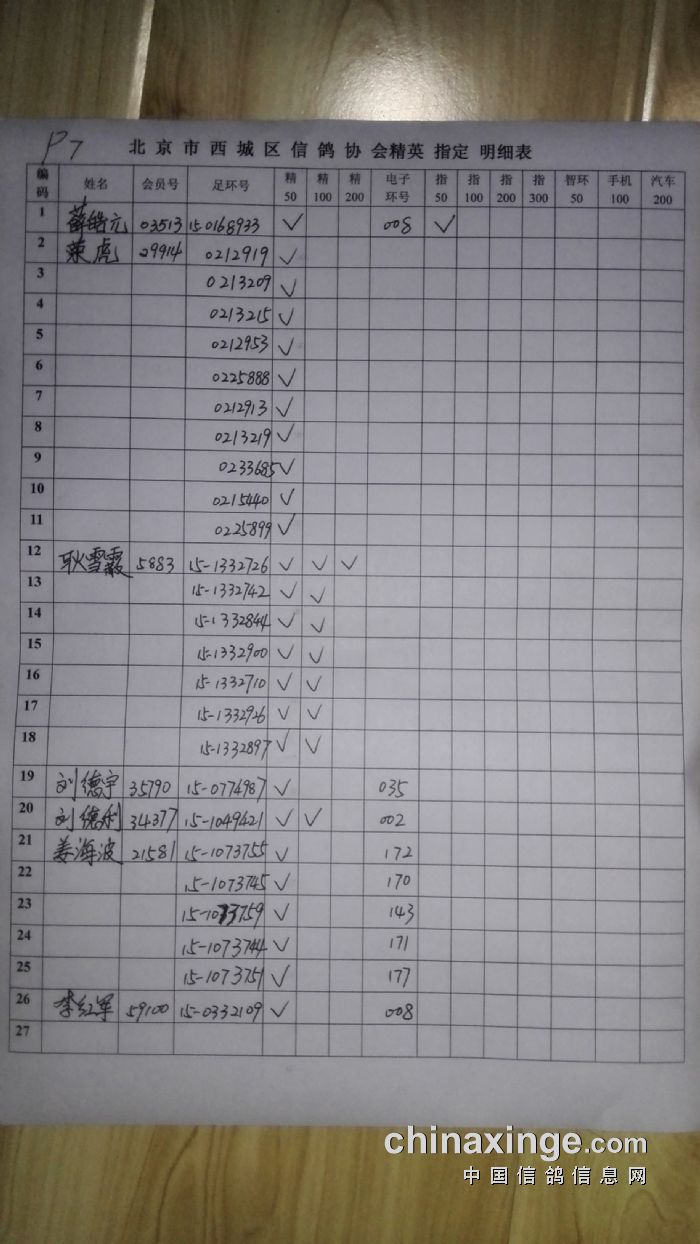 P7
北京市西城区信鸽协会精英 指定 明细表
编码 姓名 会员号 足环号 精50 精100 精200 电子环号 指50 指100 指200 指300 智环50 手机100 汽车200
1 薛皓元 03513 15.0168933 ✓ 008 ✓
2 荣虎 29914 0212919 ✓
3 0213209 ✓
4 0213215 ✓
5 0212953 ✓
6 0225888 ✓
7 0212913 ✓
8 0213219 ✓
9 0233685 ✓
10 0215440 ✓
11 0225899 ✓
12 耿雪霞 5883 15-1332726 ✓ ✓ ✓
13 15-1332742 ✓ ✓
14 15-1332844 ✓ ✓
15 15-1332900 ✓ ✓
16 15-1332710 ✓ ✓
17 15-1332926 ✓ ✓
18 15-1332897 ✓ ✓
19 刘德宇 35790 15-0774987 ✓ 035
20 刘德利 34377 15-1049421 ✓ ✓ 002
21 姜海波 21581 15-1073755 ✓ 172
22 15-1073745 ✓ 170
23 15-1073759 ✓ 143
24 15-1073744 ✓ 171
25 15-1073751 ✓ 177
26 李红军 59100 15-0332109 ✓ 008
27
chinaxinge.com
中国信鸽信息网